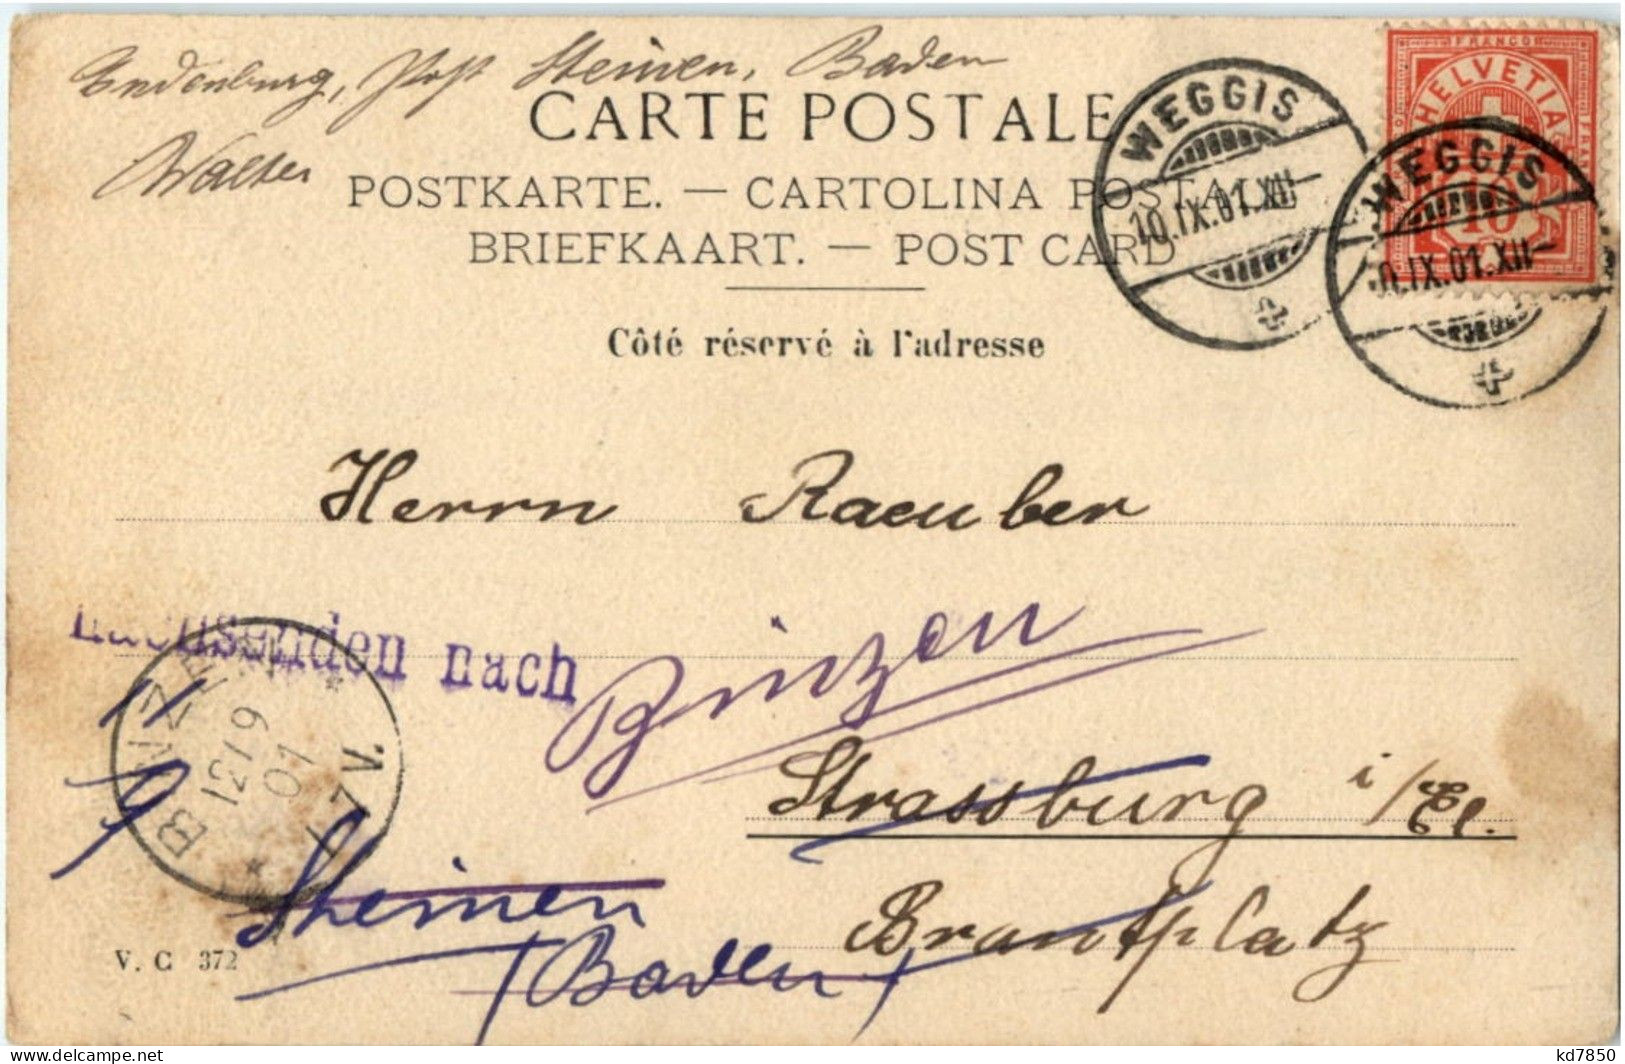 Endenburg, Post Steinen, Baden
Walter
CARTE POSTALE
POSTKARTE. — CARTOLINA POSTALE
BRIEFKAART. — POST CARD
WEGGIS
10.IX.01.XII—
FRANCO
HELVETIA
10
WEGGIS
0.IX.01.XII—
Côté réservé à l'adresse
Herrn Raeuber
nachsenden nach
Binzen
BINZEN
12/9
01
11
9
Strassburg i/Els.
Steinen
Brantplatz
(Baden)
V. C 372
kd7850